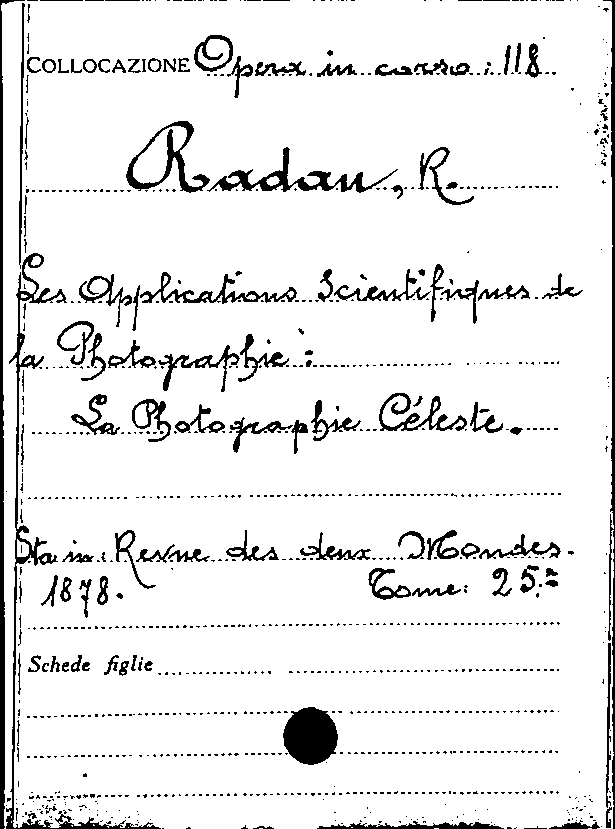 COLLOCAZIONE Opera in corso: 118
Radau, R.
Les Applications Scientifiques de
la Photographie:
La Photographie Céleste.
Sta in: Revue des deux Mondes.
1878. Tome: 25.
Schede figlie